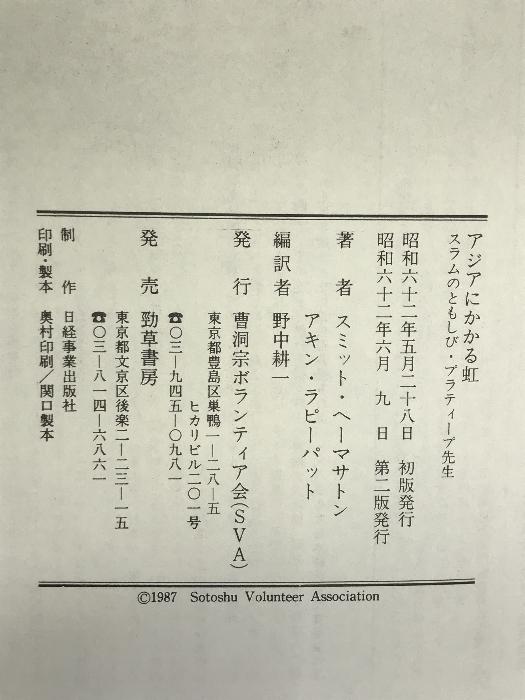 アジアにかかる虹
スラムのともしび・プラティープ先生
昭和六十二年五月二十八日　初版発行
昭和六十二年六月　九　日　第二版発行
著　者　スミット・ヘーマサトン
アキン・ラピーパット
編訳者　野中耕一
発　行　曹洞宗ボランティア会(SVA)
東京都豊島区巣鴨一―二八―五
ヒカリビル二〇一号
☎〇三―九四五―〇九八一
発　売　勁草書房
東京都文京区後楽二―二三―一五
☎〇三―八一四―六八六一
制　作　日経事業出版社
印刷・製本　奥村印刷／関口製本
©1987 Sotoshu Volunteer Association